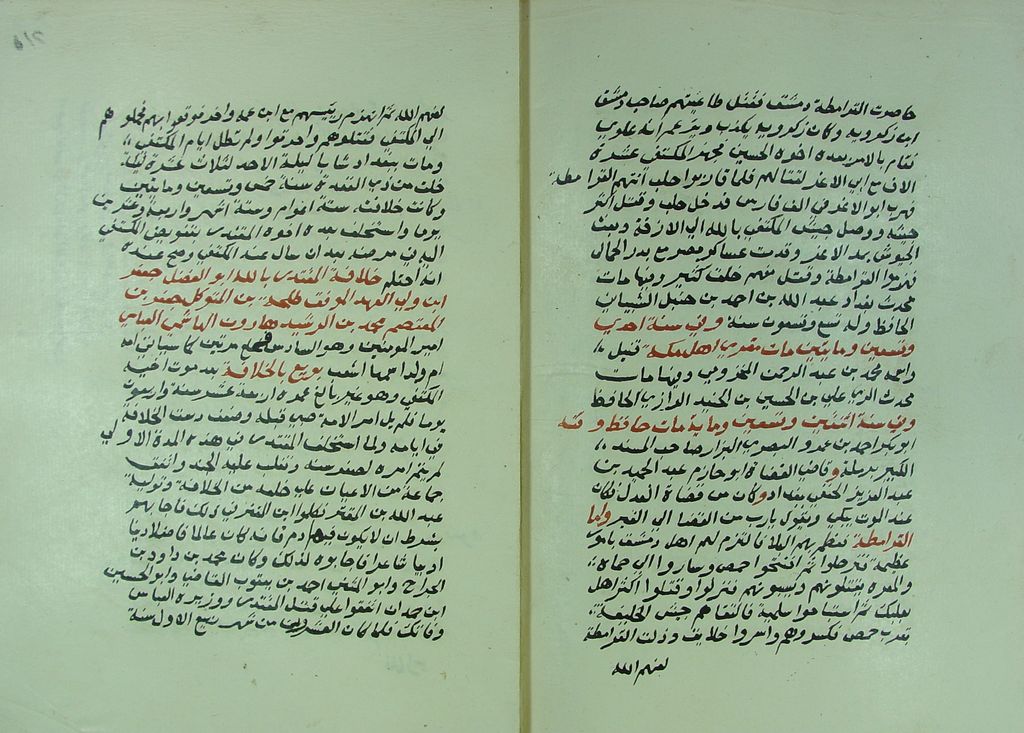 حاصرت القرامطة دمشق فقتل طاغيتهم صاحب دمشق
ابن زكرويه وكان زكرويه يكذب ويزعم انه علوي
فقام بالامر بعده اخوه الحسين فجهز المكتفي عشرة
الاف مع ابي الاغر لقتالهم فلما قاربوا حلب اتتهم القرامطة
فهرب ابو الاغر في الف فارس فدخل حلب وقتل اكثر
جيشه ووصل جيش المكتفي بالله الي الرقة وبعث
الجيوش بعد الاغر وقدمت عساكر مصر مع بدر الحمال
فهزموا القرامطة وقتل منهم خلق كثير وفيها مات
محدث بغداد عبد الله بن احمد بن حنبل الشيباني
الحافظ وله تسع وسبعون سنة وفي سنة احدي
وتسعين ومايتين مات مقري اهل مكة قنبل
واسمه محمد بن عبد الرحمن المخزومي وفيها مات
محدث الري علي بن الحسين بن الجنيد الرازي الحافظ
وفي سنة اثنتين وتسعين ومايتة مات حافظ وقته
ابو بكر احمد بن عمرو البصري البزار صاحب المسند
الكبير برملة وقاضي القضاة ابو حازم عبد الحميد بن
عبد العزيز الحنفي ببغداد وكان من قضاة العدل فكان
عند الموت يبكي ويقول يارب من القضا الي القبر واما
القرامطة فعظم بهم البلا فالتزم لهم اهل دمشق باموال
عظيمة فترحلوا ثم افتتحوا حمص وساروا الي حماة
والمعرة يقتلونهم ويسبونهم فنزلوا وقتلوا اكثر اهل
بعلبك ثم استباحوا سلمية فالتقاهم جيش الخليفة
بقرب حمص فكسروهم واسروا خلايف وذلت القرامطة
لعنهم الله
لعنهم الله ثم انهزم رييسهم مع ابن عمه واخر فوقعوا بهم فحملوهم
الي المكتفي فقتلوهم واحرقوا ولم تطل ايام المكتفي
ومات ببغداد شابا ليلة الاحد لثلاث عشرة ليلة
خلت من ذي القعدة سنة خمس وتسعين ومايتين
وكانت خلافته ستة اعوام وستة اشهر واربعة وعشرين
يوما واستخلف بعده اخوه المقتدر بتفويض المكتفي
اليه في مرضه بعد ان سال عنه المكتفي وصح عنده
انه احتلم خلافة المقتدر بالله ابو الفضل جعفر
ابن ولي العهد الموفق طلحة بن المتوكل جعفر بن
المعتصم محمد بن الرشيد هارون الهاشمي العباسي
امير المومنين وهو السادس فخلع مرتين كما سياتي امه
ام ولد اسمها شغب بويع بالخلافة بعد موت اخيه
المكتفي وهو غير بالغ عمره اربعة عشر سنة واربعون
يوما فلم يل امر الامة صبي قبله وضعف دست الخلافة
في ايامه ولما استخلف المقتدر في هذه المدة الاولي
لم يتم امره لصغر سنه وتغلب عليه الجند واتفق
جماعة من الاعيان علي خلعه من الخلافة وتولية
عبد الله بن المعتز فكلموا ابن المعتز في ذلك فاجابهم
بشرط ان لا يكون فيها دم فانه كان عالما فاضلا دينا
اديبا شاعرا فاجابوه لذلك وكان محمد بن داود بن
الجراح وابو المثني احمد بن يعقوب القاضي وابو الحسين
ابن حمدان اتفقوا علي قتل المقتدر ووزيره العباس
وفاتك فلما كان العشرون من شهر ربيع الاول سنة